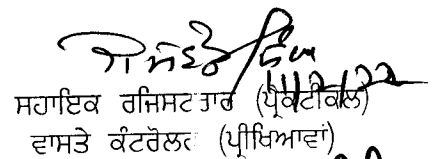 11/2/22
ਸਹਾਇਕ ਰਜਿਸਟਰਾਰ (ਪ੍ਰੈਕਟੀਕਲ)
ਵਾਸਤੇ ਕੰਟਰੋਲਰ (ਪ੍ਰੀਖਿਆਵਾਂ)